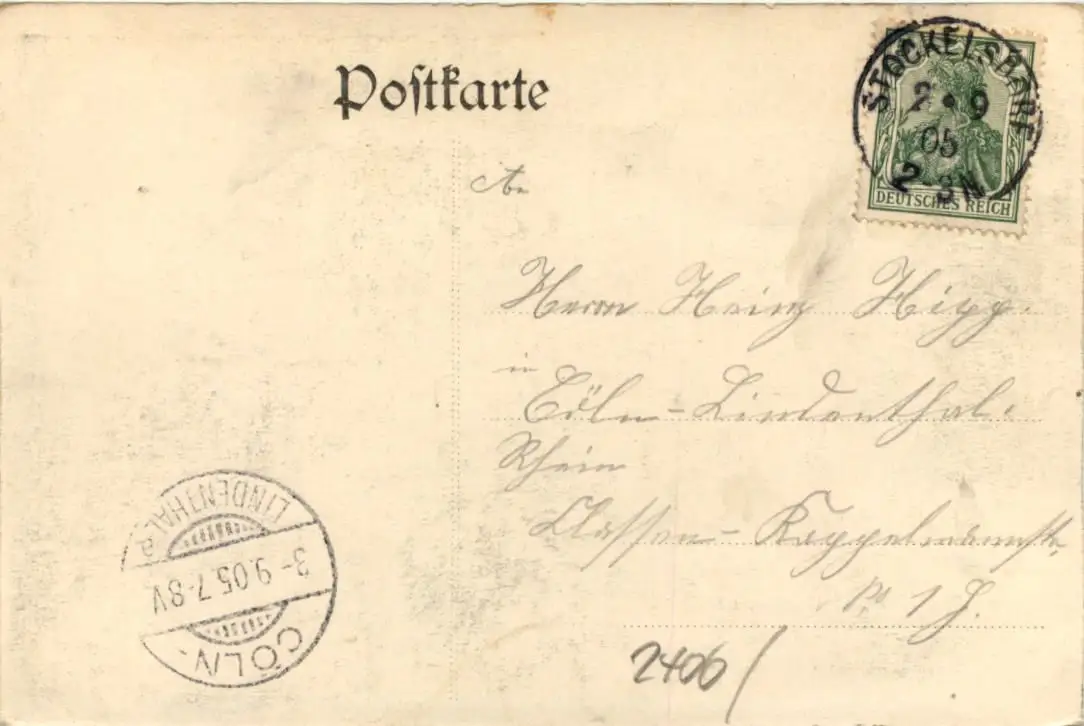 Poſtkarte
STOCKELSDORF
2 • 9
05
2-3N
DEUTSCHES REICH
An
Herrn Heinz Hipp.
in
Cöln-Lindenthal.
Rhein
Classen-Kappelmannstr.
1
CÖLN-
3-9.05.7-8V.
LINDENTHAL a
2406